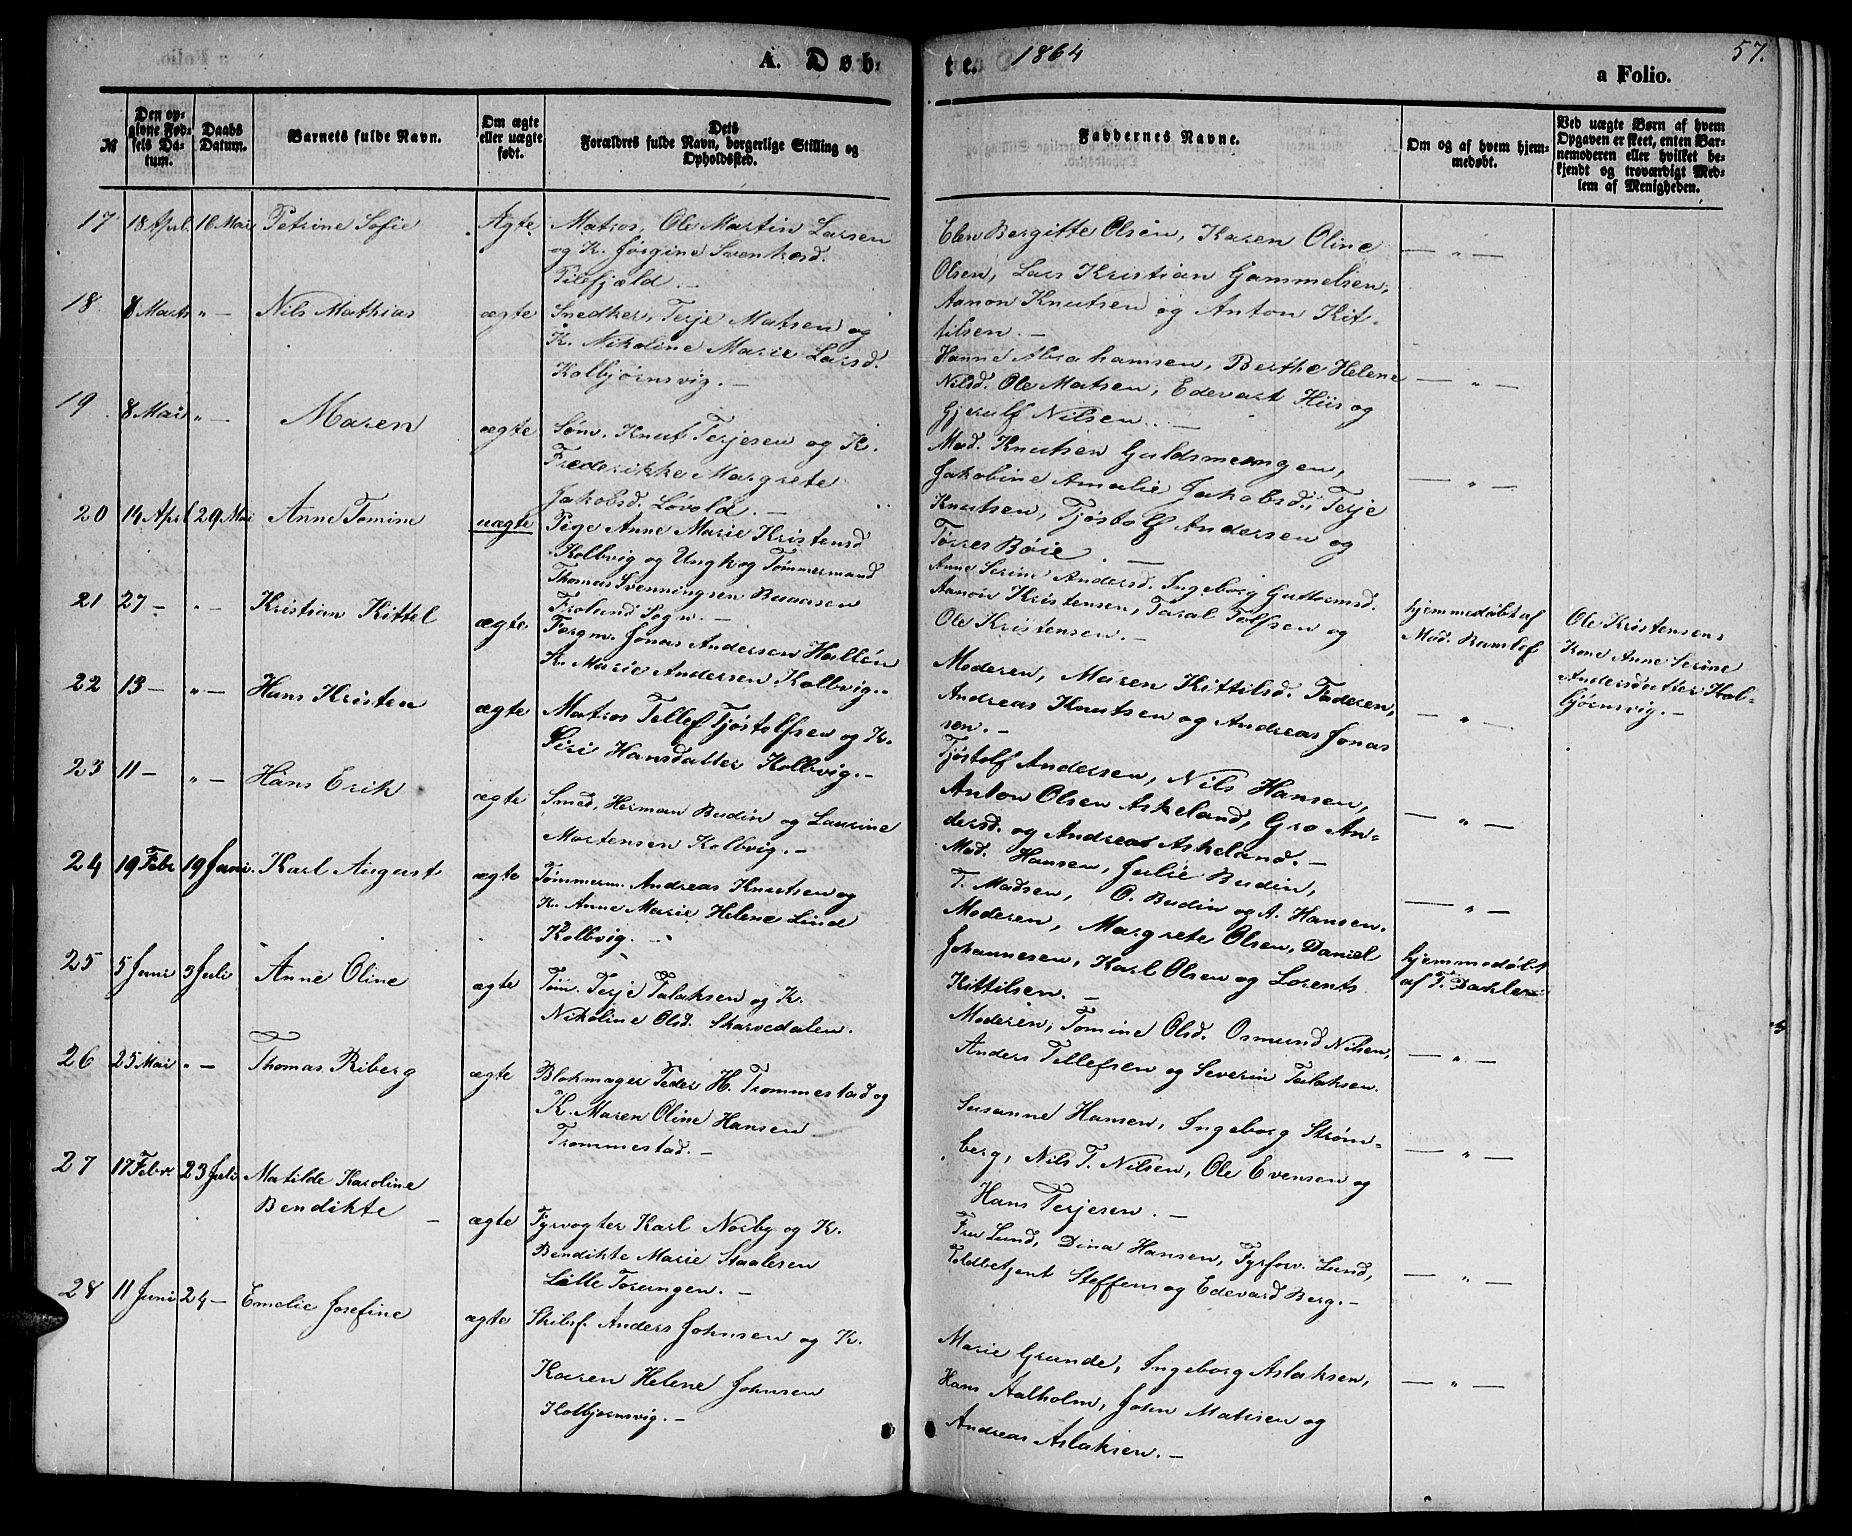 A. Døb- te. 1864 57.
a Folio.
№
Den opgivne Fødsels Datum.
Daabs Datum.
Barnets fulde Navn.
Om ægte eller uægte født.
Dets Forældres fulde Navn, borgerlige Stilling og Opholdssted.
Faddernes Navne.
Om og af hvem hjemmedøbt.
Ved uægte Børn af hvem Opgaven er skeet, enten Barnemoderen eller hvilket bekjendt og troværdigt Medlem af Menigheden.
17 18 April 16 Mai Petrine Sofie Ægte
Matros, Ole Martin Larsen
og K. Jørgine Svenkesd.
Tilefjæld. —
Elen Bergitte Olsen, Karen Oline
Olsen, Lars Kristian Gammelsen,
Aanon Knutsen og Anton Kit-
tilsen. —
— " —
18 8 Marts " — Nils Mathias ægte
Snedker, Terje Matsen og
K. Nikoline Marie Larsd.
Kolbjørnsvig. —
Hanne Abrahamsen, Berthe Helene
Nilsd. Ole Matsen, Edevart Hiis og
Gjerulf Nilsen. —
— " —
19 8 Mai " — Maren ægte
Søm. Knut Terjesen og K.
Frederikke Margrete
Jakobsd. Løvold. —
Mad. Knutsen Guldsmeengen,
Jakobine Amalie Jakobsd., Terje
Knutsen, Tjøstolf Andersen og
Tørres Bøie —
— " —
20 14 April 29 Mai Anne Tomine uægte
Pige Anne Marie Kristensd
Kolbvig og Ungk og Tømmermand
Thomas Svenningsen Buaasen
Froland Sogn. —
Anne Serine Andersd. Ingeborg Guttormsd.
Aanon Kristensen, Taral Tolfsen og
Ole Kristensen. —
hjemmedøbt af
Mad. Ramlef
Ole Kristensens
Kone Anne Serine
Andersdatter Kol-
bjørnsvig. —
21 27 — " — Kristian Kittel ægte
Forgm. Jonas Andersen Hallén
K. Marie Andersen Kolbvig. —
Moderen, Maren Kittilsd. Faderen,
Andreas Knutsen og Andreas Jonas
sen. —
— " —
22 13 — " — Hans Kristen ægte
Matros Tellef Tjøstolfsen og K.
Siri Hansdatter Kolbvig. —
Tjøstolf Andersen, Nils Hansen,
Anton Olsen Askeland, Gro An-
dersd. og Andreas Askeland. —
— " —
23 11 — " — Hans Erik ægte
Smed, Herman Budin og Laurine
Mortensen Kolbvig. —
Mad. Hansen, Julie Budin,
T. Madsen, O. Budin og A. Hansen.
— " —
24 19 Febr 19 Juni Karl August ægte
Tømmerm. Andreas Knutsen og
K. Anne Marie Helene Lind
Kolbvig. —
Moderen, Margrete Olsen, Daniel
Johannesen, Karl Olsen og Lorents
Kittilsen. —
hjemmedøbt
af F. Dahler
25 5 Juni 3 Juli Anne Oline ægte
Tøm. Terje Talaksen og K.
Nikoline Olsd. Skarvedalen.
Moderen, Tomine Olsd. Osmund Nilsen,
Anders Tellefsen og Severin Talaksen.
— " —
26 25 Mai " — Thomas Riberg ægte
Blokmager Peder H. Trommestad og
K. Maren Oline Hansen
Trommestad. —
Susanne Hansen, Ingeborg Strøm-
berg, Nils T. Nilsen, Ole Evensen og
Hans Terjesen. —
— " —
27 17 Febr. 23 Juli Matilde Karoline
Bendikte — ægte
Fyrvogter Karl Norby og K.
Bendikte Marie Staalesen
Lille Torungen. —
Fru Lund, Dina Hansen, Fyrforv. Lund,
Toldbetjent Steffens og Edevard Berg. —
— " —
28 11 Juni 24 — Emelie Josefine ægte
Skibsf. Anders Johnsen og K.
Karen Helene Johnsen
Kolbjørnsvig. —
Marie Grunde, Ingeborg Aslaksen,
Hans Aalholm, John Matisen og
Andreas Aslaksen. —
— " —